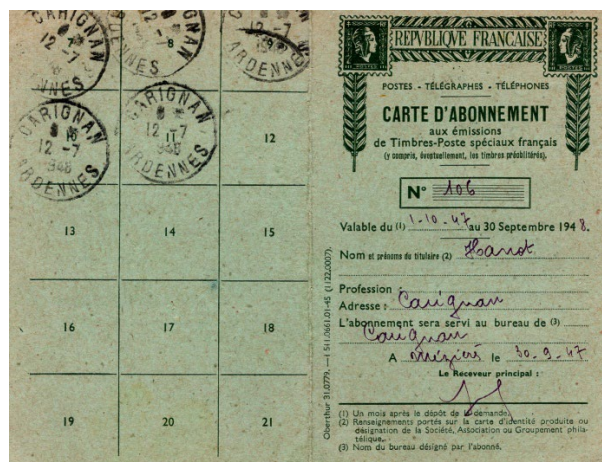 CARIGNAN
12 -7
ARDENNES
CARIGNAN
12 -7
ARDENNES
ARDENNES
CARIGNAN
12 -7
1948
ARDENNES
CARIGNAN
12 -7
1948
ARDENNES
10
11
12
13
14
15
16
17
18
19
20
21
Oberthur 31.0779. — I 511.0661.01-45 (1122.0007).
REPVBLIQUE FRANÇAISE
POSTES - TÉLÉGRAPHES - TÉLÉPHONES
CARTE D'ABONNEMENT
aux émissions
de Timbres-Poste spéciaux français
(y compris, éventuellement, les timbres préoblitérés).
N° 106
Valable du (1) 1-10-47 au 30 Septembre 1948.
Nom et prénoms du titulaire (2) Hanot
Profession :
Adresse : Carignan
L'abonnement sera servi au bureau de (3)
Carignan
A Mézières le 30-9-47
Le Receveur principal :
(1) Un mois après le dépôt de la demande.
(2) Renseignements portés sur la carte d'identité produite ou
désignation de la Société, Association ou Groupement phila-
télique.
(3) Nom du bureau désigné par l'abonné.